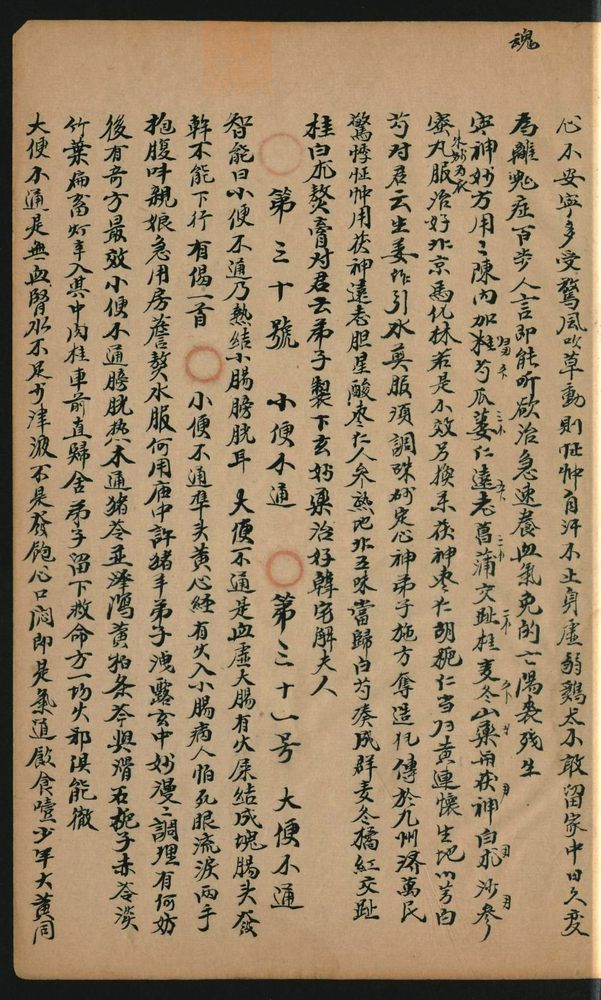 魂
心不安寧多受驚風吹草動則怔忡自汗不止身虛弱雞犬不敢留家中日久變
為離鬼症百步人言即能听欲治急速養血氣免的亡陽喪残生
安神妙方用二陳內加桂芍瓜蔞仁遠志菖蒲交趾桂麦冬山藥雨茯神白朮沙參
蜜丸服治好北京馬代林若是不效另換柔茯神枣仁胡桃仁当归黄連懷生地川芎白
朱砂为衣
芍对君云生姜作引水煎服須調硃砂定心神弟子施方奪造化傳於九州濟萬民
驚悸怔忡用茯神遠志胆星酸枣仁人參熟地北五味當歸白芍湊成群麦冬橘紅交趾
桂白朮熬膏对君云弟子製下玄妙藥治好韓宅解夫人
第三十號 小便不通 第三十一号 大便不通
智能曰小便不通乃熱結小腸膀胱耳 大便不通是血虛大腸有火屎結成塊腸头發
幹不能下行有偈一首 小便不通準头黄心經有火入小腸病人怕死眼流淚兩手
抱腹叫親娘急用房簷熬水服何用庙中許猪羊弟子洩露玄中妙漫漫調理有何妨
後有奇方最效小便不通膀胱热木通猪苓並澤瀉黄柏条芩與滑石梔子赤苓淡
竹葉扁畜灯草入其中肉桂車前直歸舍弟子留下救命方一切火邪俱能徹
大便不通是無血腎水不足少津液不是發飽心口闷即是氣逆飲食噎少年大黄同